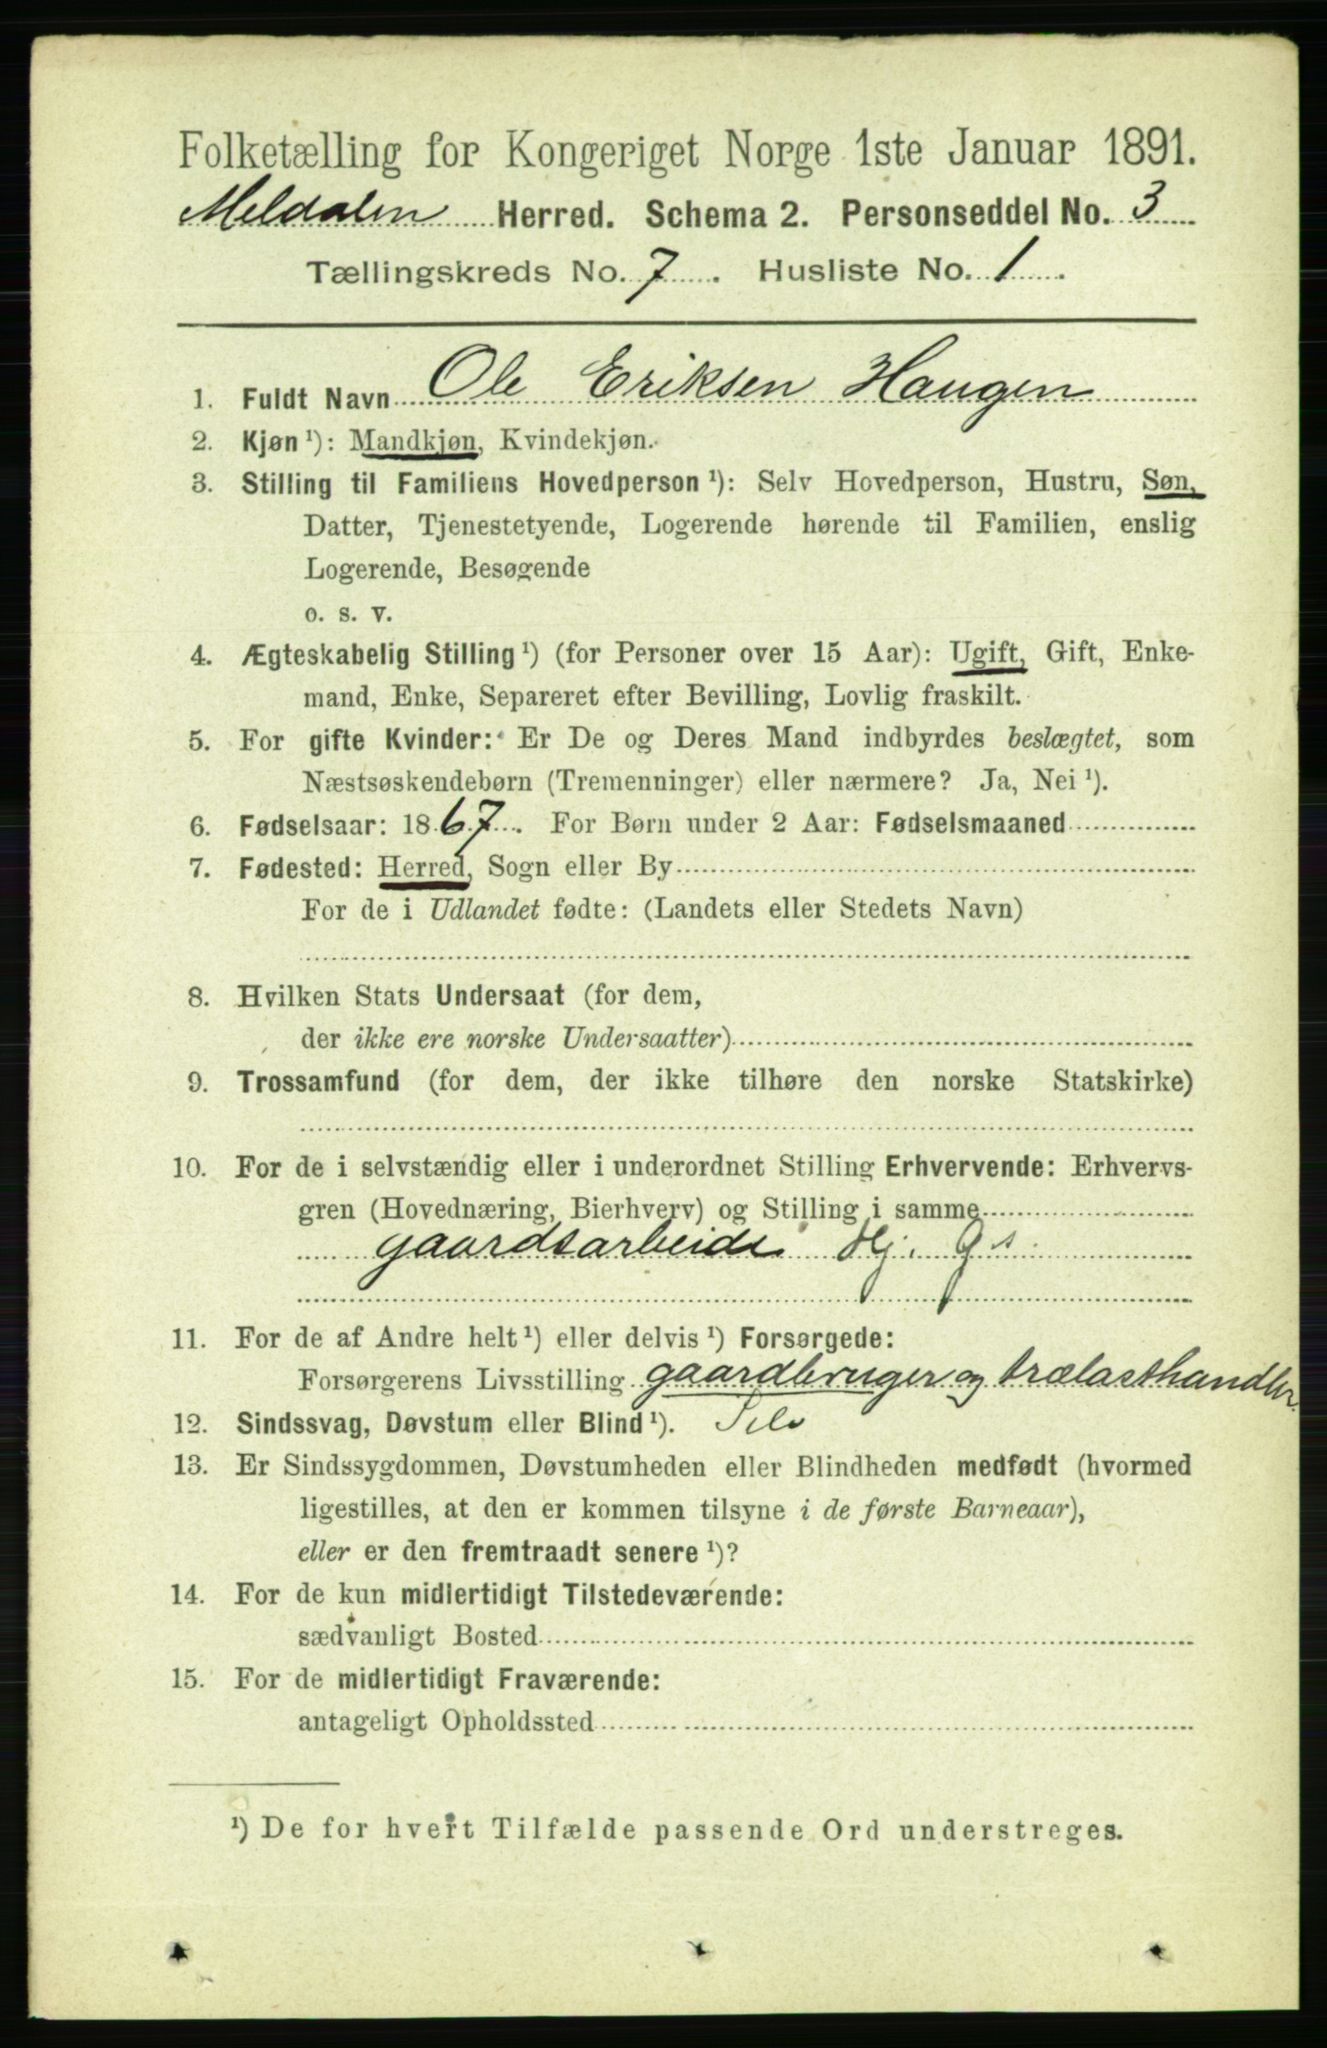 Folketælling for Kongeriget Norge 1ste Januar 1891.
Meldalen Herred. Schema 2. Personseddel No. 3
Tællingskreds No. 7. Husliste No. 1.
1. Fuldt Navn Ole Eriksen Haugen
2. Kjøn ¹): Mandkjøn, Kvindekjøn.
3. Stilling til Familiens Hovedperson ¹): Selv Hovedperson, Hustru, Søn,
Datter, Tjenestetyende, Logerende hørende til Familien, enslig
Logerende, Besøgende
o. s. v.
4. Ægteskabelig Stilling ¹) (for Personer over 15 Aar): Ugift, Gift, Enke-
mand, Enke, Separeret efter Bevilling, Lovlig fraskilt.
5. For gifte Kvinder: Er De og Deres Mand indbyrdes beslægtet, som
Næstsøskendebørn (Tremenninger) eller nærmere? Ja, Nei ¹).
6. Fødselsaar: 1867. For Børn under 2 Aar: Fødselsmaaned
7. Fødested: Herred, Sogn eller By
For de i Udlandet fødte: (Landets eller Stedets Navn)
8. Hvilken Stats Undersaat (for dem,
der ikke ere norske Undersaatter)
9. Trossamfund (for dem, der ikke tilhøre den norske Statskirke)
10. For de i selvstændig eller i underordnet Stilling Erhvervende: Erhvervs-
gren (Hovednæring, Bierhverv) og Stilling i samme
gaardsarbeide Hj. Gs
11. For de af Andre helt ¹) eller delvis ¹) Forsørgede:
Forsørgerens Livsstilling gaardbruger og trælasthandler.
12. Sindssvag, Døvstum eller Blind ¹).
13. Er Sindssygdommen, Døvstumheden eller Blindheden medfødt (hvormed
ligestilles, at den er kommen tilsyne i de første Barneaar),
eller er den fremtraadt senere ¹)?
14. For de kun midlertidigt Tilstedeværende:
sædvanligt Bosted
15. For de midlertidigt Fraværende:
antageligt Opholdssted
¹) De for hvert Tilfælde passende Ord understreges.